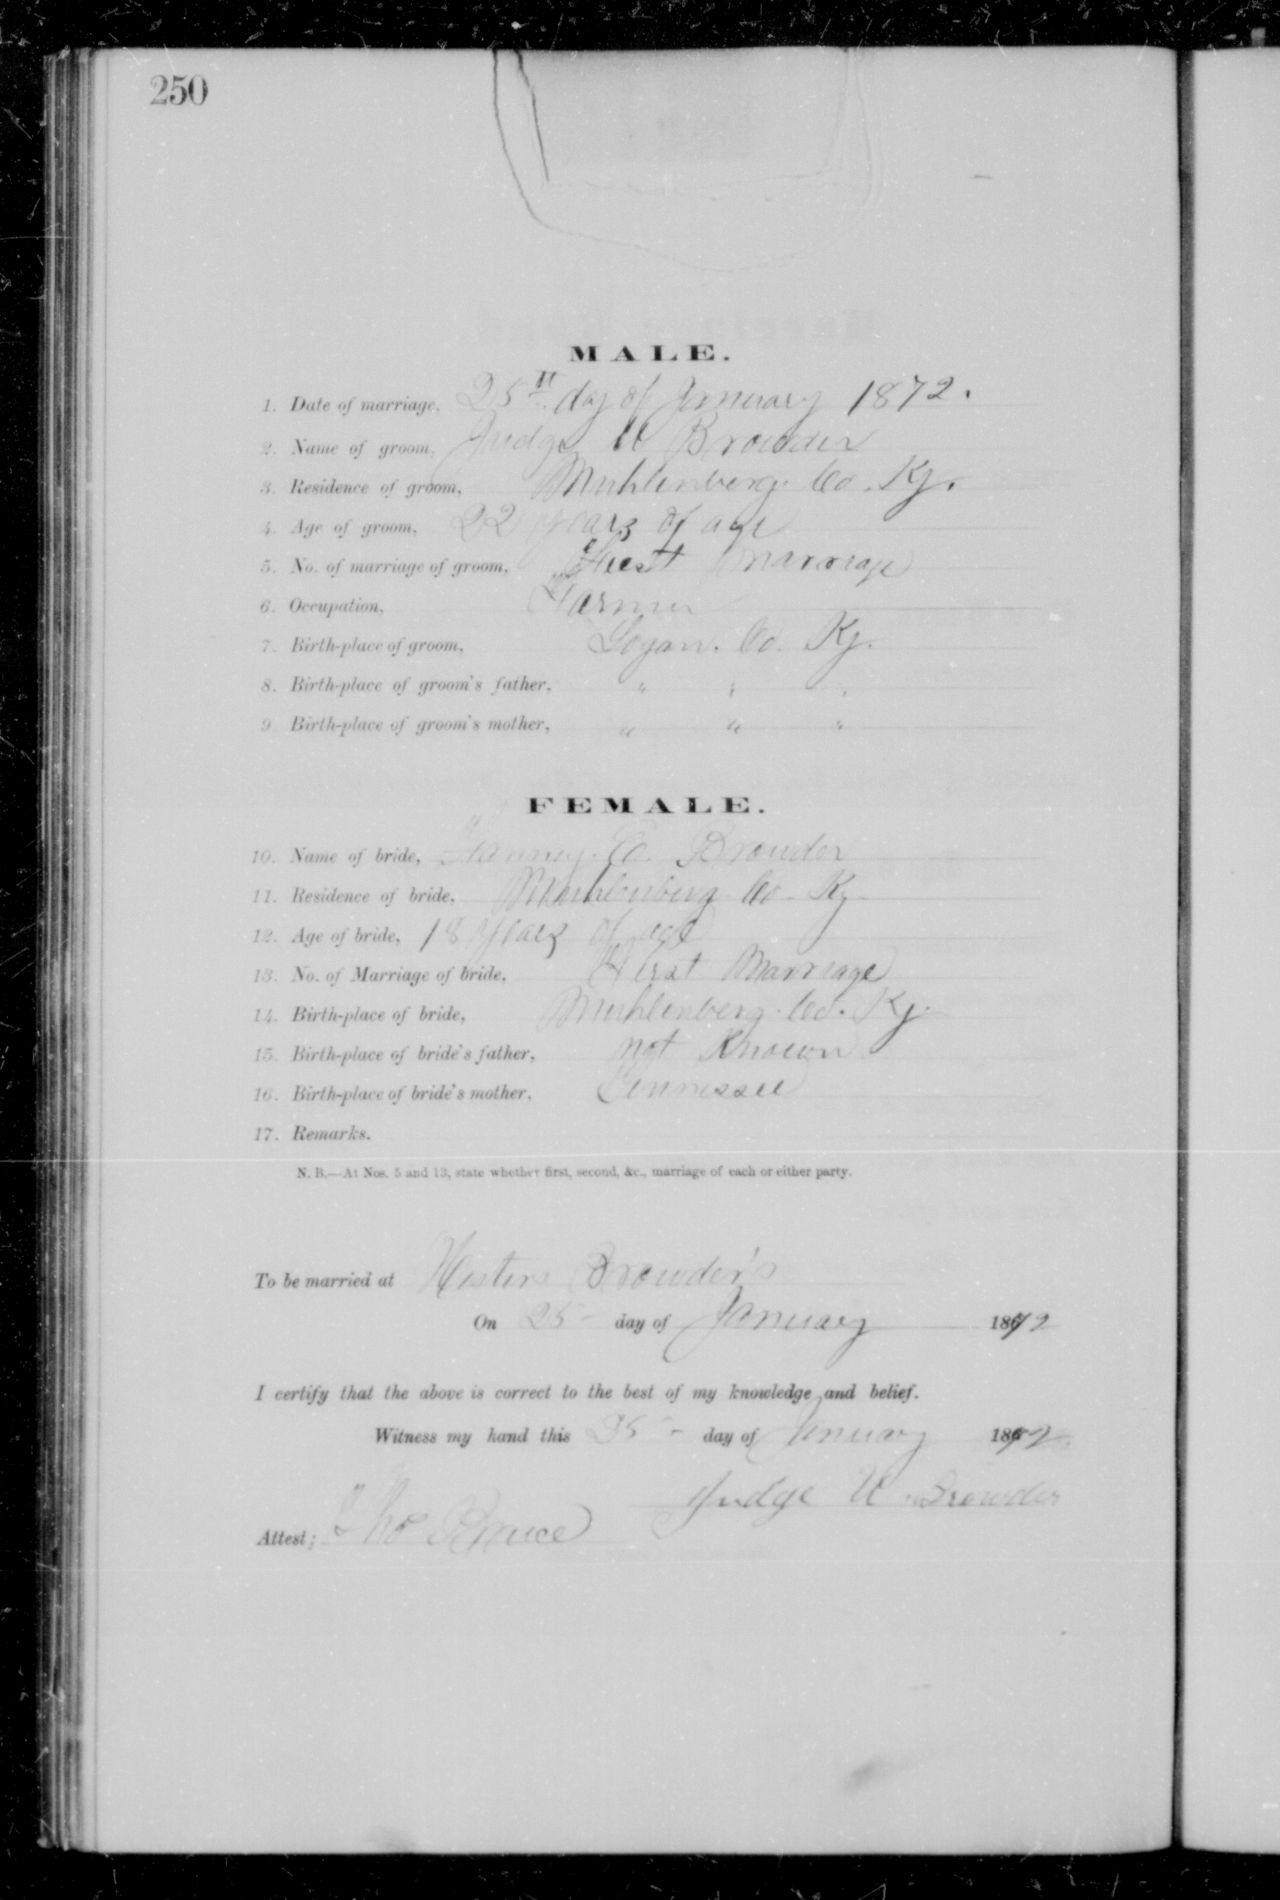 250
MALE.
1. Date of marriage, 25th day of January 1872.
2. Name of groom, Judge U Browder
3. Residence of groom, Muhlenberg Co. Ky.
4. Age of groom, 22 years of age
5. No. of marriage of groom, First Marriage
6. Occupation, Farmer
7. Birth-place of groom, Logan. Co. Ky.
8. Birth-place of groom's father, " " "
9. Birth-place of groom's mother, " " "
FEMALE.
10. Name of bride, Fanney. Browder
11. Residence of bride, Muhlenberg Co. Ky.
12. Age of bride, 18 years of age
13. No. of Marriage of bride, First Marriage
14. Birth-place of bride, Muhlenberg. Co. Ky.
15. Birth-place of bride's father, not Known
16. Birth-place of bride's mother, Tennessee
17. Remarks.
N. B.—At Nos. 5 and 13, state whether first, second, &c., marriage of each or either party.
To be married at Browder's
On 25 - day of January 1872
I certify that the above is correct to the best of my knowledge and belief.
Witness my hand this 25 - day of January 1872.
Judge U Browder
Attest; Tho Bruce